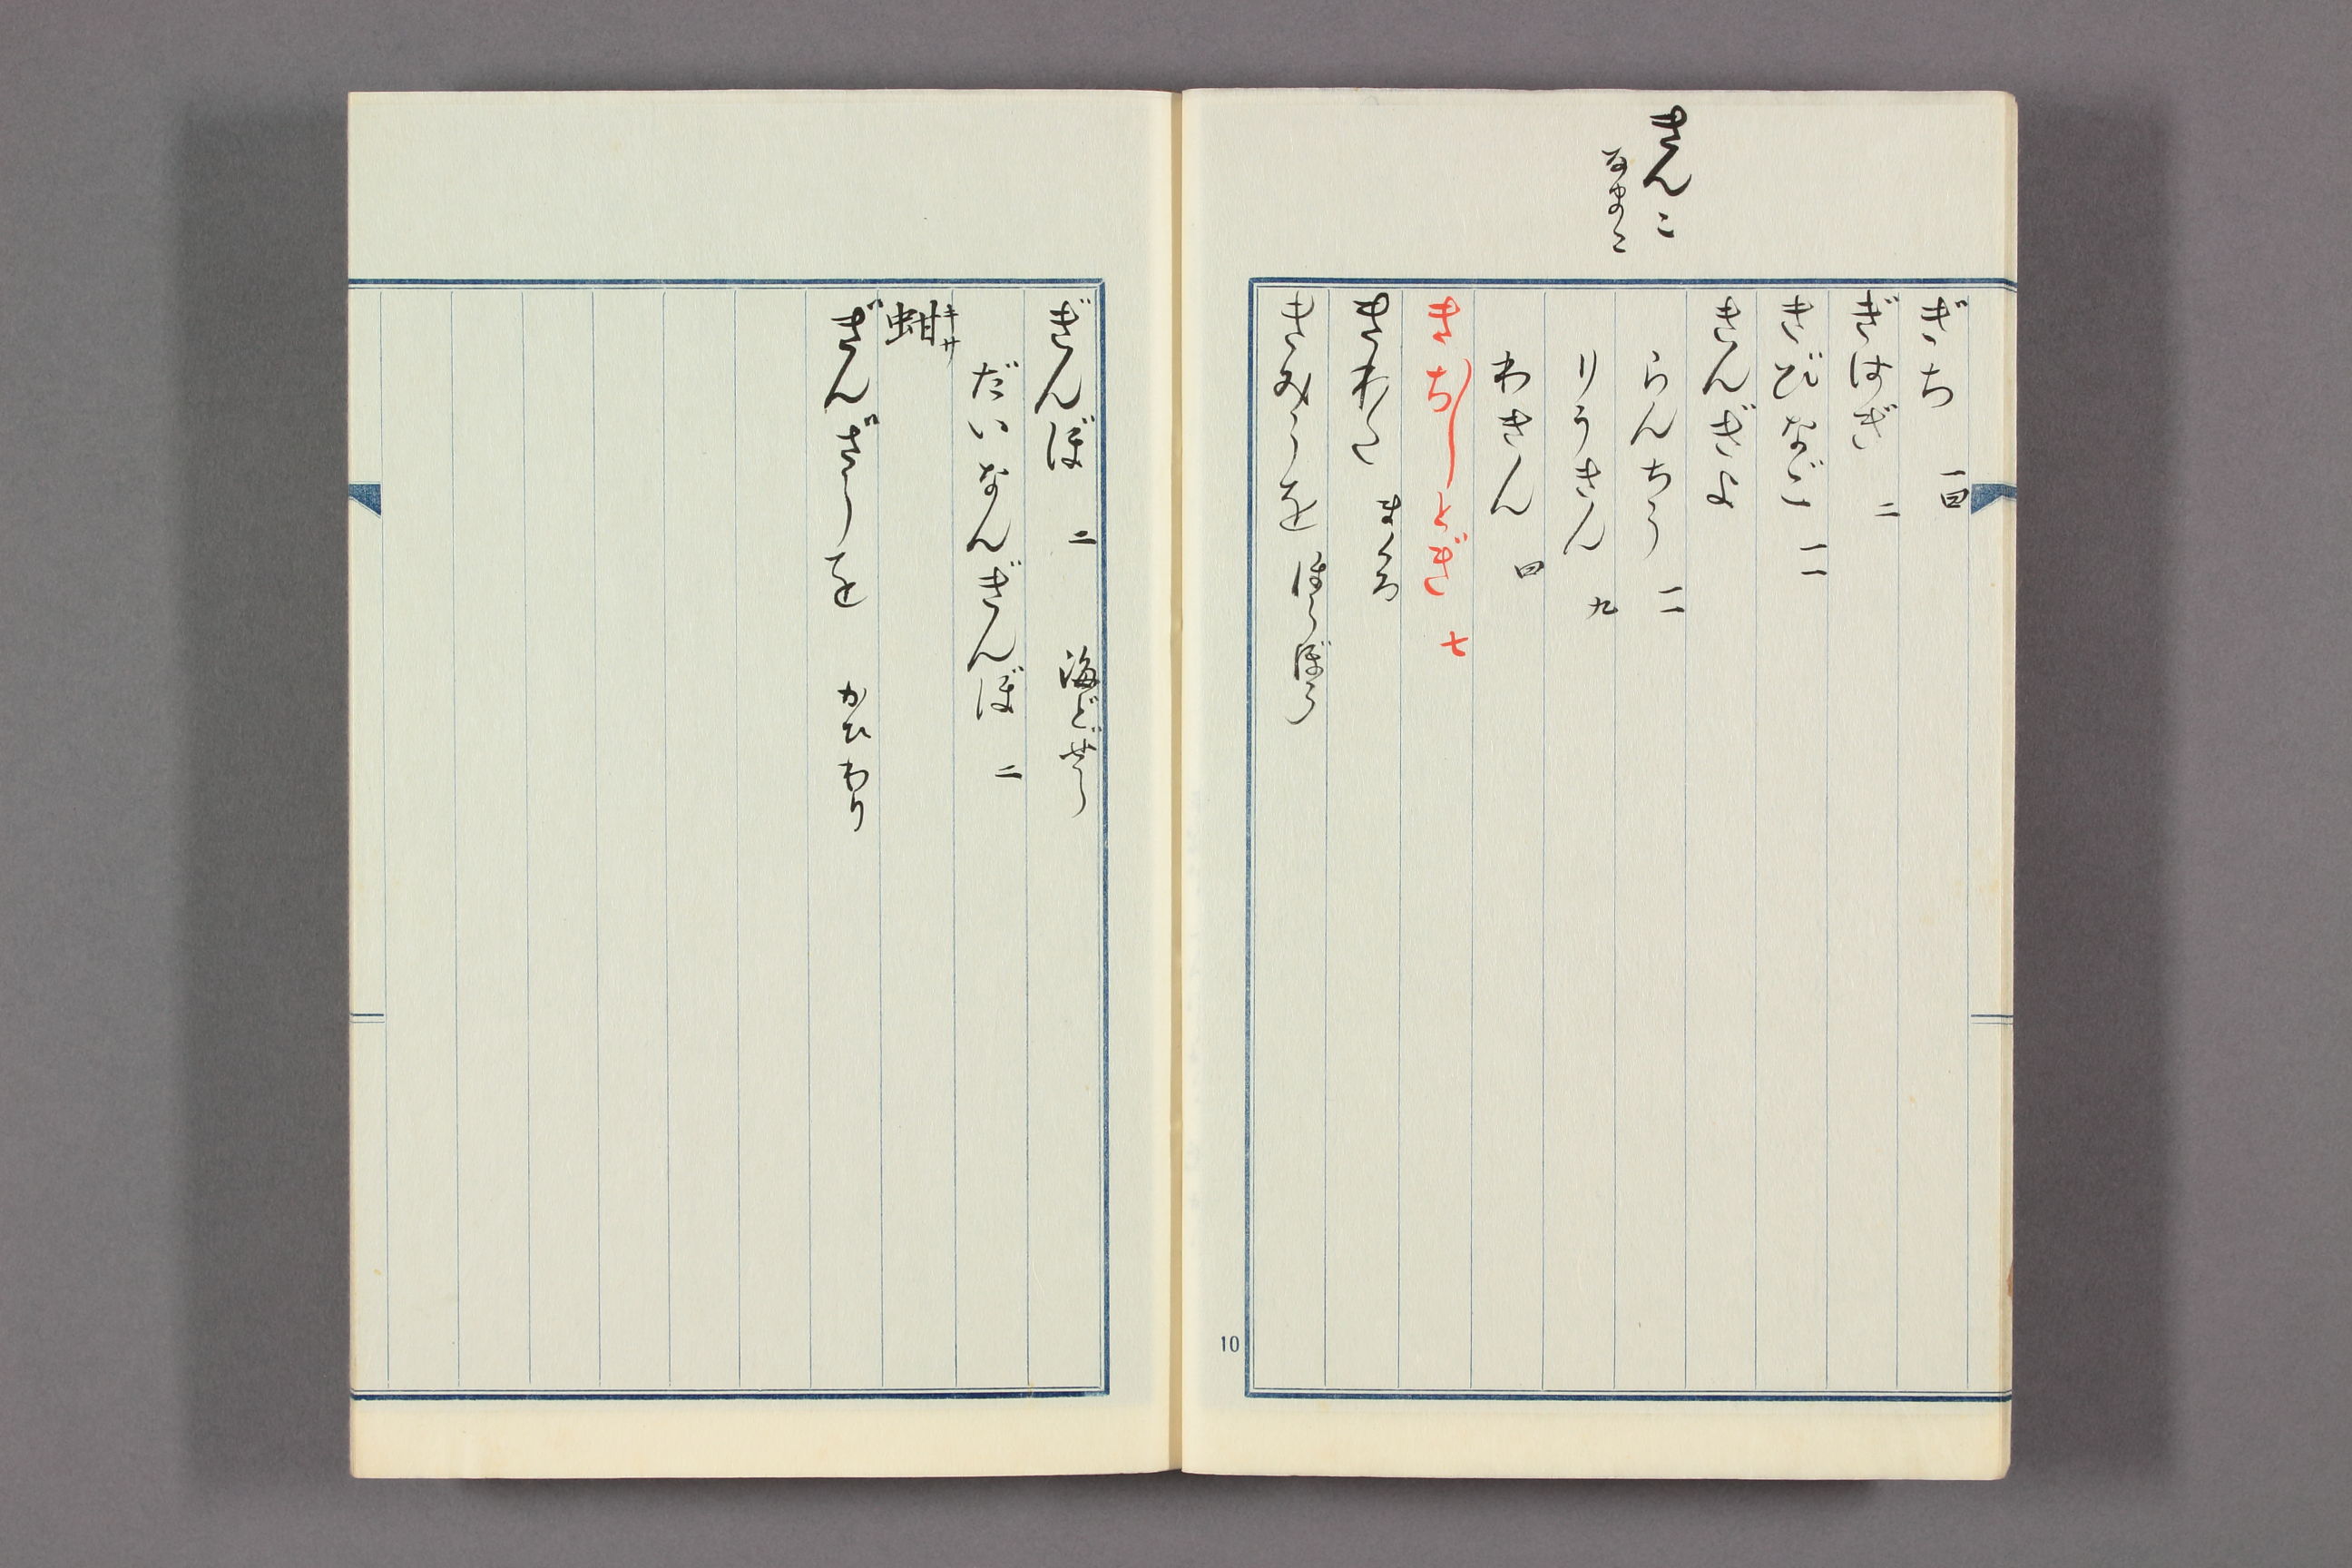 きんこ
なまこ
ぎち 一四
ぎはぎ 二
きびなご 一一
きんぎよ
らんちう 一一
りうきん 九
わきん 四
きちじとぎ 七
きわだ まぐろ
きみうを ほうぼう
10
ぎんぽ 二 海どぜう
だいなんぎんぽ 二
蚶 キサ
ぎんざうを かひわり